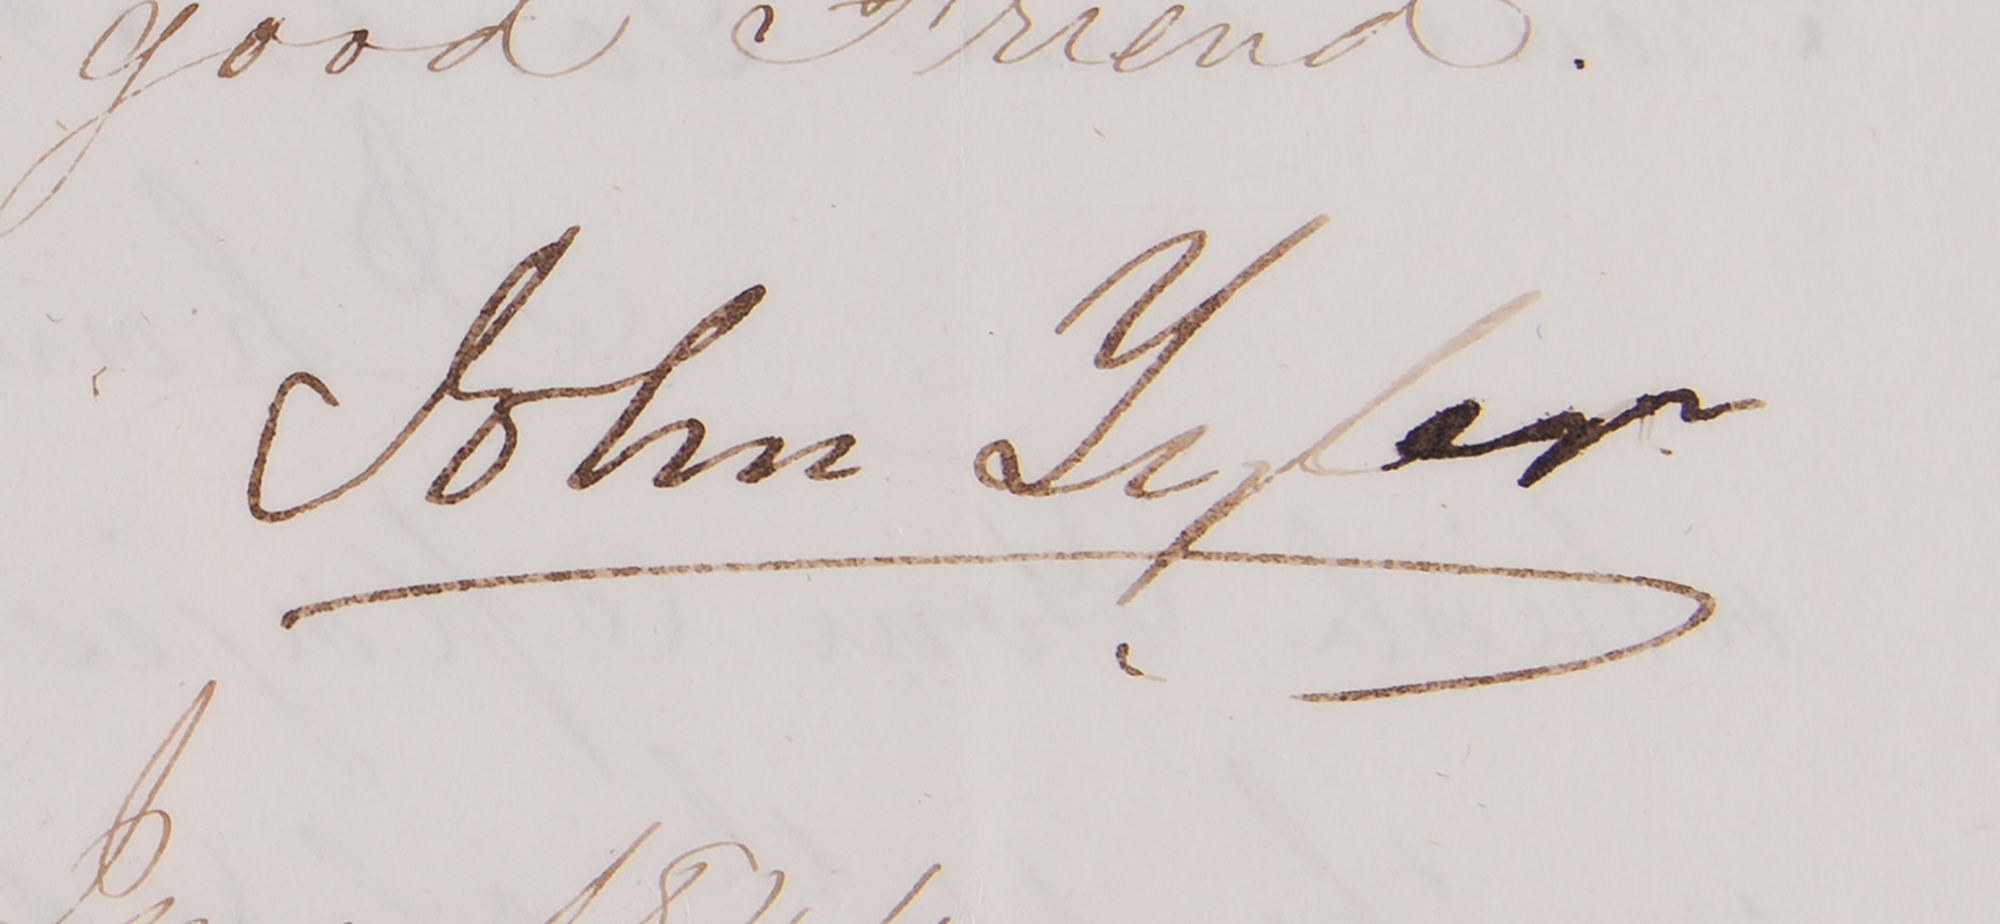 good Friend.
John Tyler